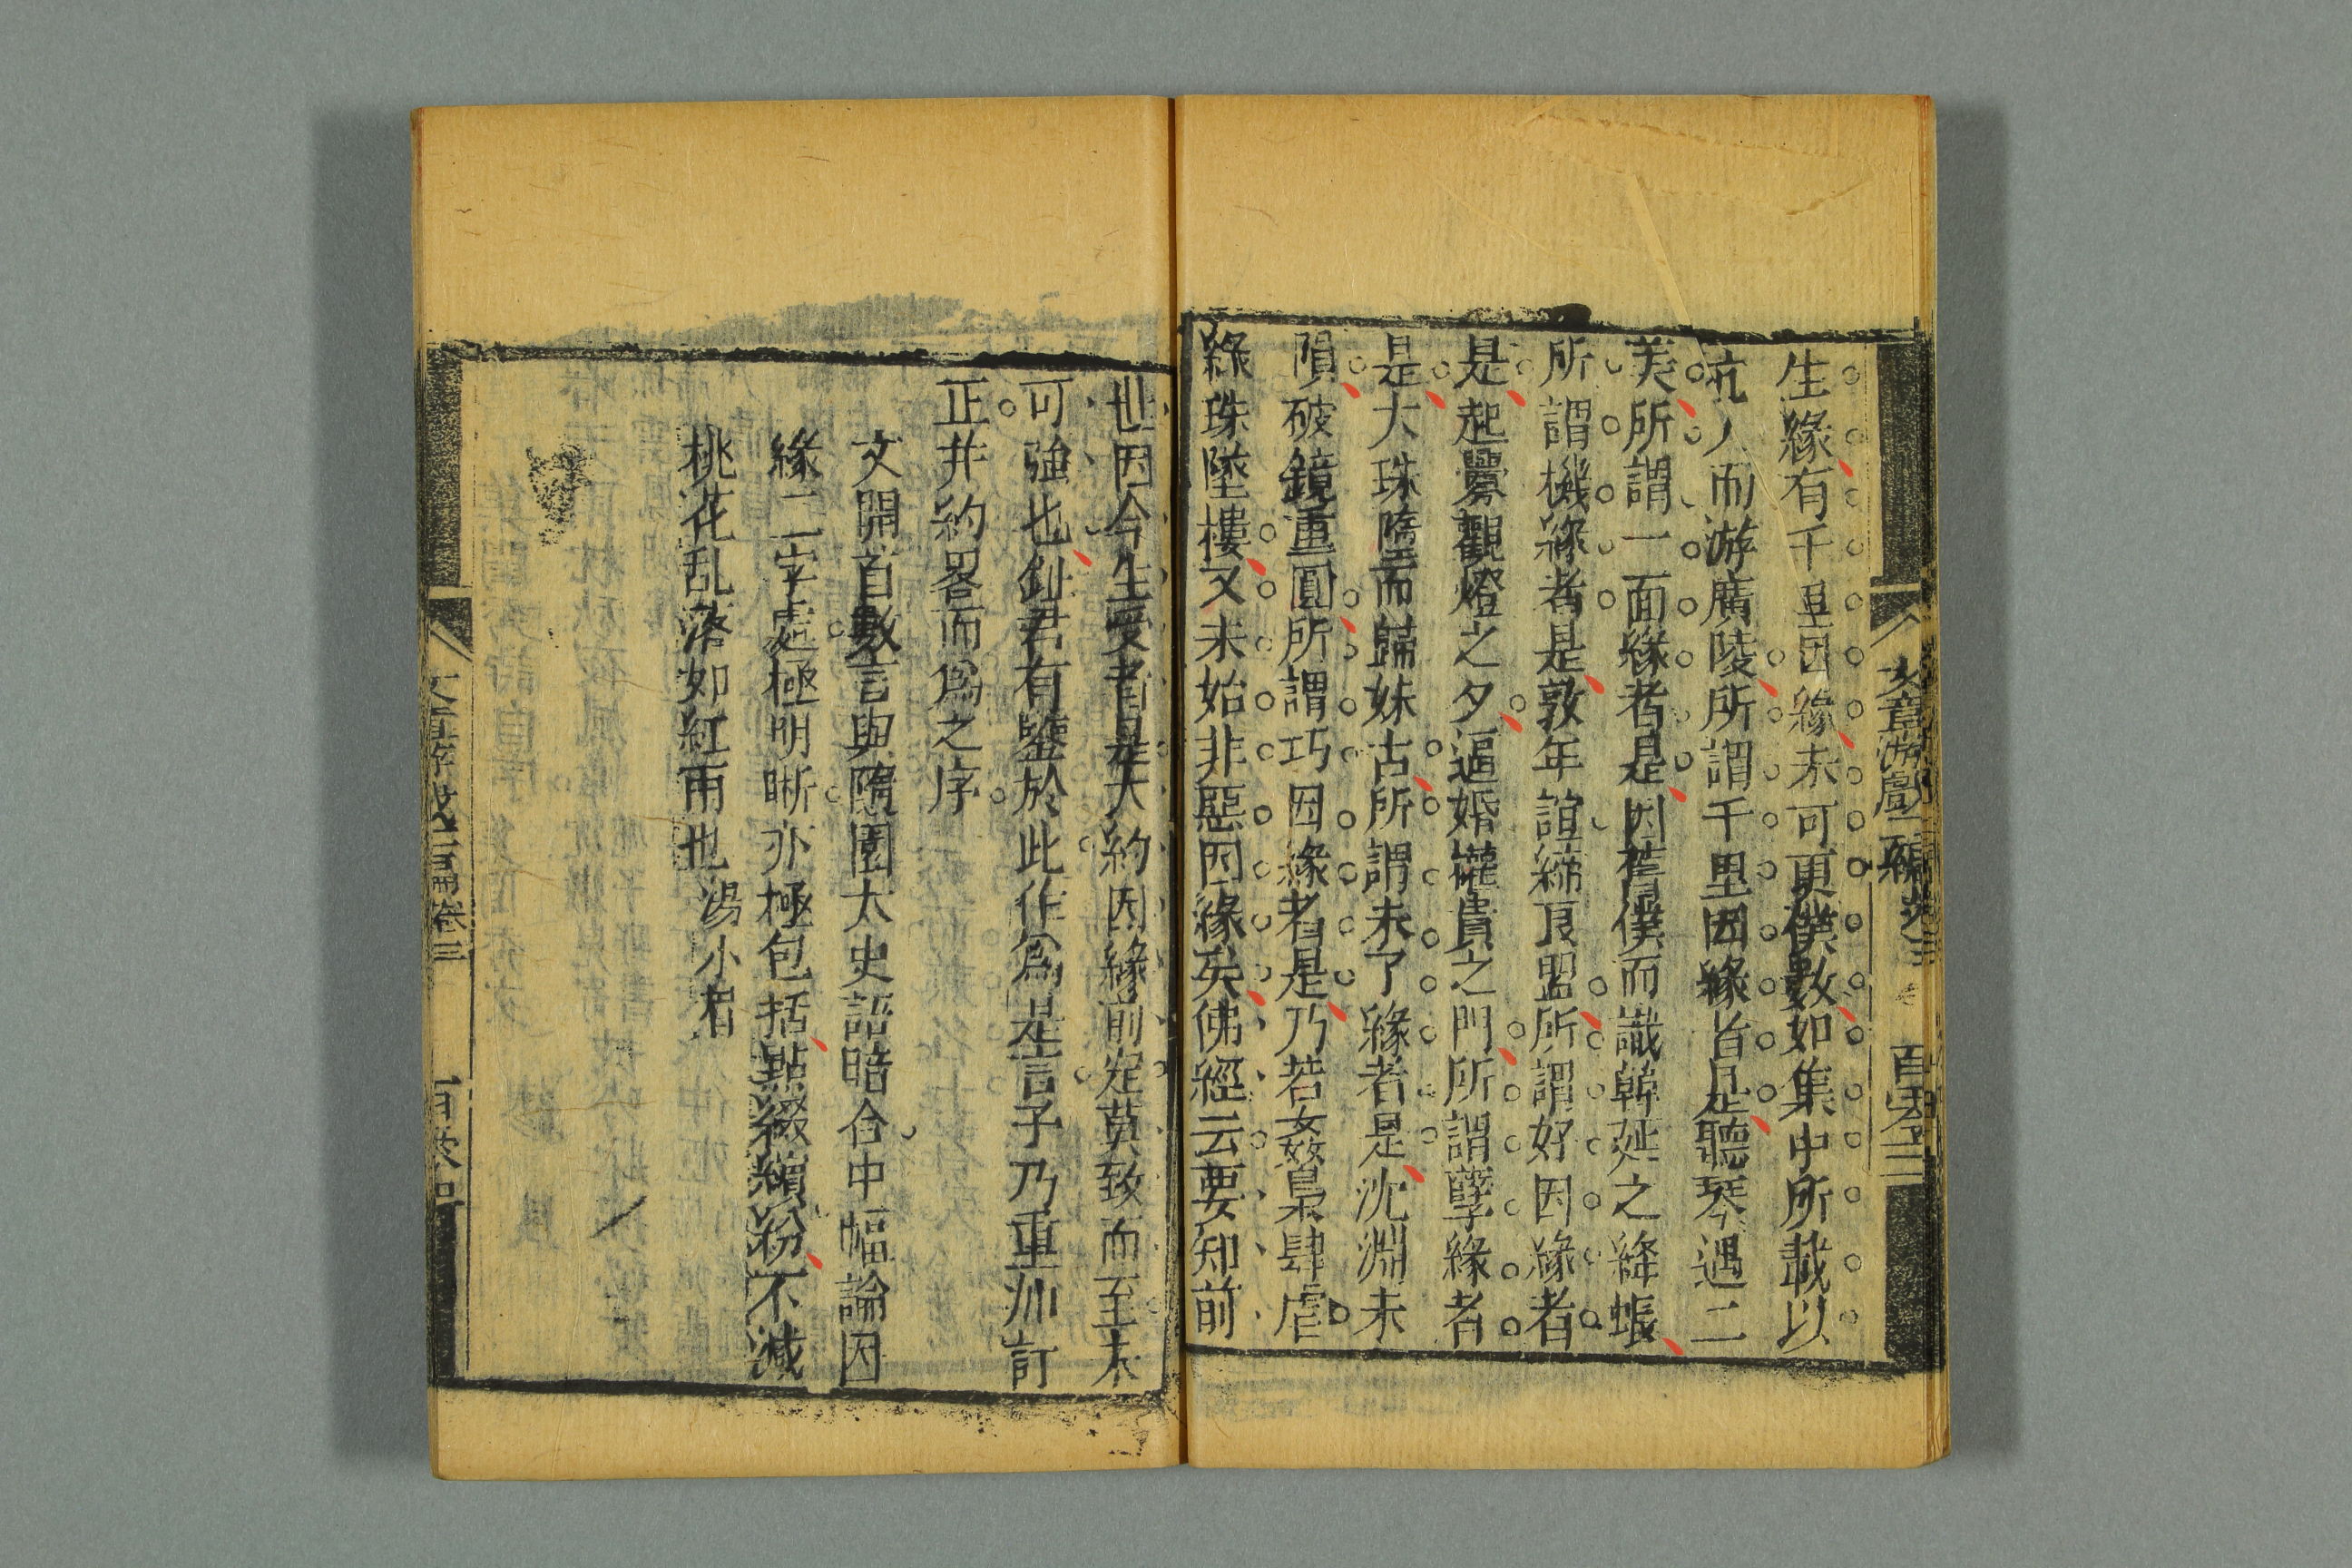 文章游戲二編卷三
生緣有千里因緣未可更僕數如集中所載以
杭人而游廣陵所謂千里因緣皆是聽琴遇二
美所謂一面緣者是因舊僕而識韓延之絳帳
所謂機緣者是敦年誼締良盟所謂好因緣者
是起釁觀燈之夕逼婚權貴之門所謂孽緣者
是大珠墮而歸妹古所謂未了緣者是沈淵未
隕破鏡重圓所謂巧因緣者是乃若姦梟肆虐
綠珠墜樓又未始非惡因緣矣佛經云要知前
世因今生受者是大約因緣前定莫致而至未
可強也釗君有鑒於此作爲是言子乃重加訂
正并約畧而爲之序
文開首數言與隨園太史語暗合中幅論因
緣二字處極明晰亦極包括點綴繽紛不減
桃花乱落如紅雨也 湯小眉
文章游戲二編卷三